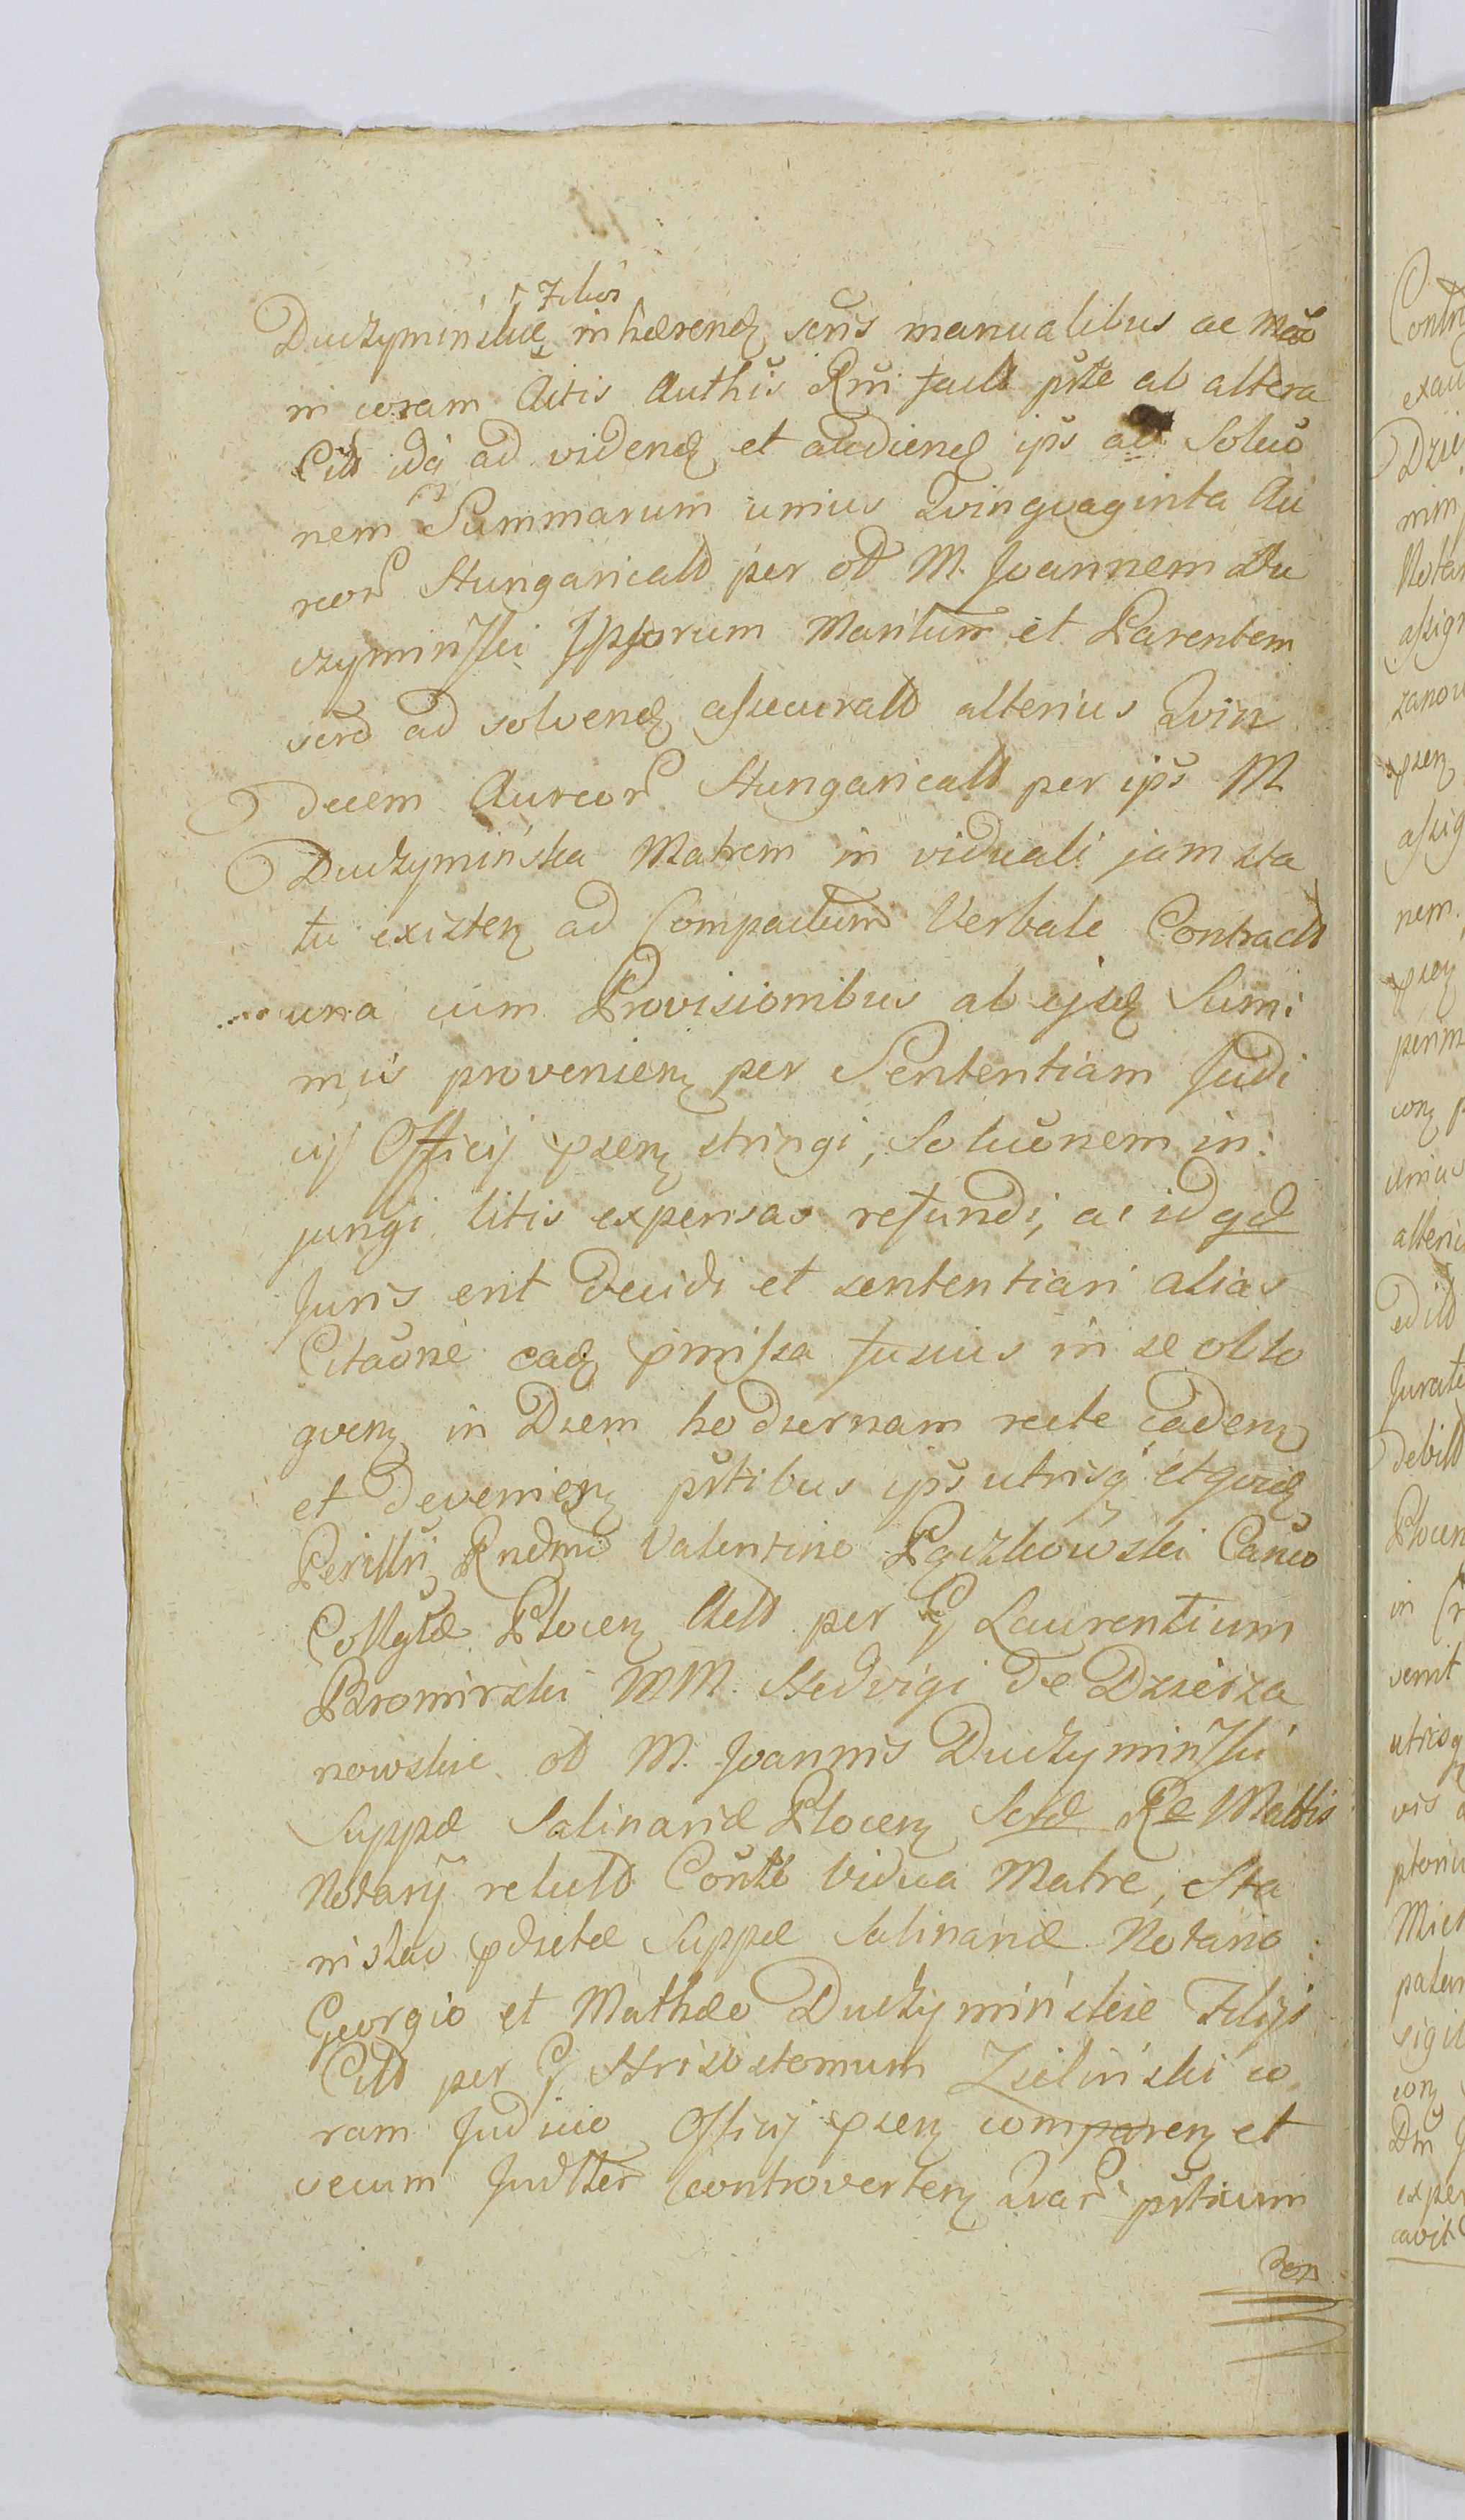 Filios
Duczyminskie inhærend sciis manualibus ac mão
ni coram Actis Authis Rmi fact prte ab altera
Citt ida ad vidend et audiend ips ad Soluõ
nem Summarum unius Qvinqvaginta Au
reor Hungaricalt per od M. Joannem Du
czyminski Ipsorum Maritum et Parentem
ad solvend assecuralt alterius Qvin
decem Aureor Hungaricalt per ips M
Duczymińska Matrem in viduali jam sta
tu existen ad Compactum Verbale Contract
una cum Provisionibus ab ejsd Sum:
mis provenien per Sententiam Judi
cij Officij psen stringi, Soluõnem in:
jungi litis expensas refundi, ac id qd
Juris erit decidi et sententiari alias
Citaõne ead pmissa fusius in se obło
qven in Diem hodiernam recte caden
et devenien prtibus ips utrisq et qvid
Perillri Rndmo Valentino Pączkowski Canco
Collgtæ Plocen Actt per G Laurentium
Bromirski MM. Hedvigi de Dzierza
nowskie od M. Joannis Duczyminski
Suppæ Salinariæ Plocen Scræ Ræ Mattis
Notarij relict Conte Vidua Matre, Sta
nislao pdictæ Suppæ Salinariæ Notario
Georgio et Mathæo Duczyminskie Filijs
Citt per G Hrisostomum Zielinski co
ram Judicio Officij psen comparen et
secum Judtter controverten Qvar prtium
don